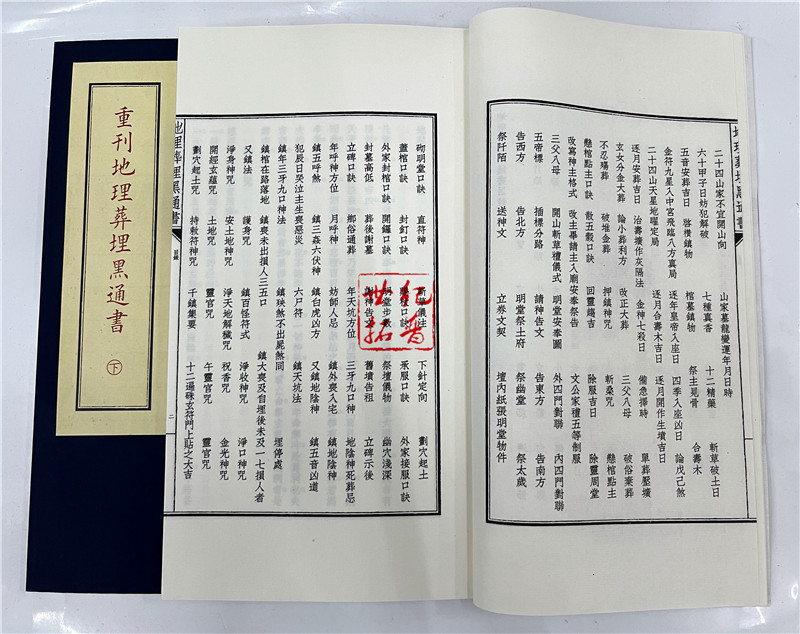 重刊地理葬埋黑通書 下
地理葬埋黑通書
二十四山家不宜開山向 山家墓龍變運年月日時
六十甲子日妨犯解破 七種真香 十二精藥 斬草破土日
五音安葬吉日 啓欑鎮物 棺墓鎮物 祭主見骨 合壽木
金符九星入中宮飛臨八方真局 逐年皇帝入座日 四季入座凶日 論戊己煞
二十四山天星地曜定局 逐月合壽木吉日 逐月開作生墳吉日
逐月安葬吉日 治壽壙作灰隔法 金神七殺日 備急擇時 單葬壓壙
玄女分金大葬 論小葬利方 改正大葬 三父八母 破俗棄葬
不忍殤葬 破堆金葬 押鎮神咒 斬桑咒 懸棺點主
懸棺點主口訣 散五穀口訣 回靈鏹吉 除服吉日 除靈周堂
改寫神主格式 改主畢請主入廟安奉祭告 文公家禮五等制服
三父八母 開山斬草禮儀式 明堂安奉圖 外四門對聯 內四門對聯
五帝標 插標分路 請神告文 告東方 告南方
告西方 告北方 明堂祭土府 祭幽堂 祭太歲
祭阡陌 送神文 立券文契 壇內紙張明堂物件
砌明堂口訣 直符神 斬草儀注 下針定向 劃穴起土
蓋棺口訣 封釘口訣 口訣 承服口訣 外家接服口訣
外家封棺口訣 開鑼口訣 明堂步數 祭壇儀物 幽穴淺深
封墓高低 葬後謝墓 謝神告文 舊墳告祖 立碑示後
立碑口訣 鄉俗通葬 年天坑方位 三牙九口神 地陰神死葬忌
年呼神方位 月呼神 妨師人忌 鎮外喪入宅 鎮地陰神
鎮五呼煞 鎮三姦六伏神 鎮白虎凶方 又鎮地陰神 鎮五音凶道
犯辰日哭泣主生喪惡災 六尸符 鎮天坑法
鎮年三牙九口神法 鎮殃煞不出屍煞同 埋停處
鎮棺在路落地 鎮喪未出損人三五口 鎮大喪及自埋後未及一七損人者
又鎮法 護身咒 鎮百怪符式
淨身神咒 安土地神咒 淨天地解穢咒 淨妝神咒 淨口神咒
開經玄蘊咒 土地咒 靈官咒 祝香咒 金光神咒
劃穴起土咒 持敕符神咒 千鎮集要 午靈官咒 靈官咒
十二遍硃玄符門上貼之大吉
地理葬埋黑通書 目録 二
世紀拓普